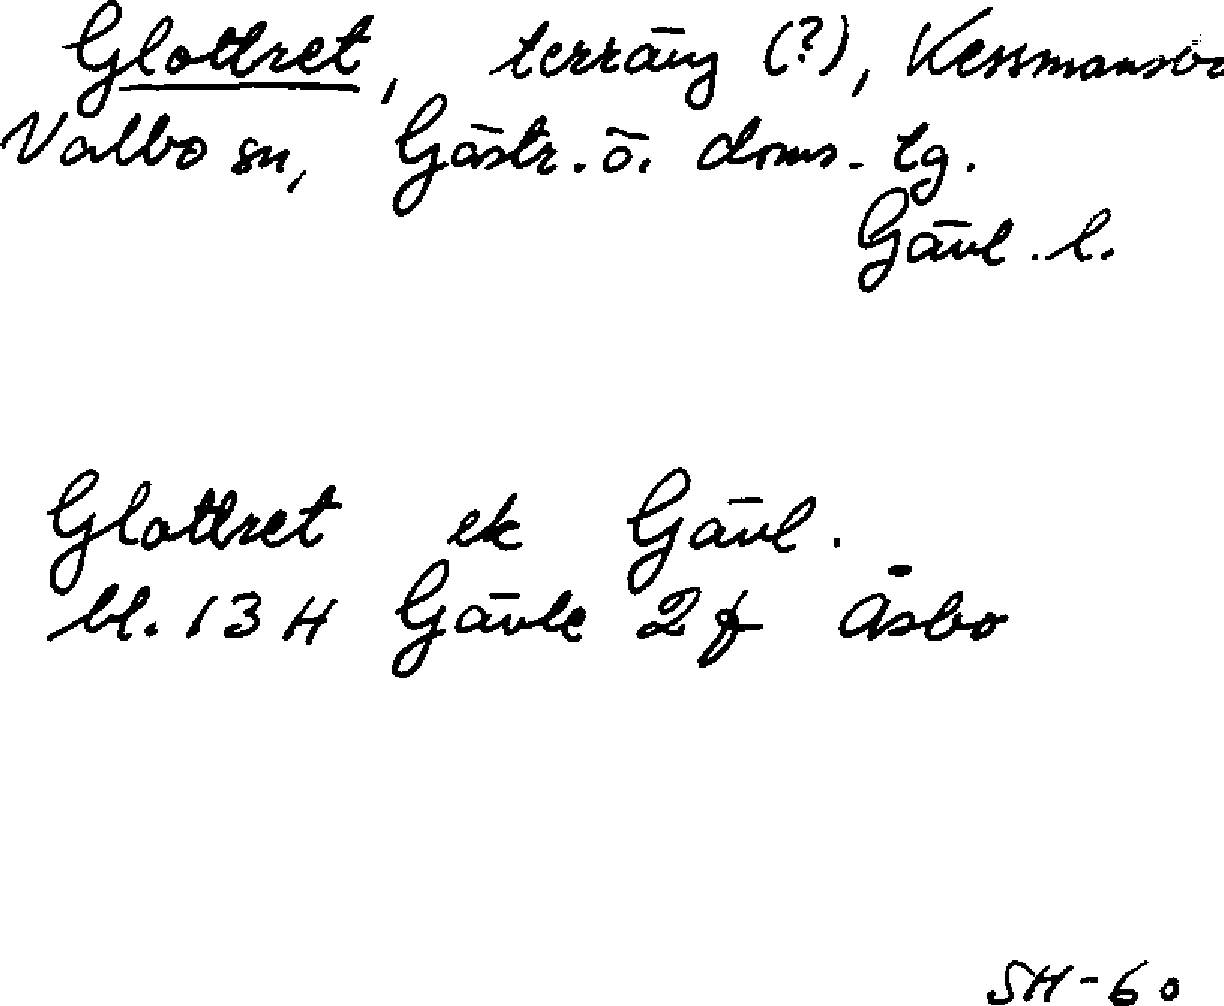 Glottret, terräng (?), Kessmansbo
Valbo sn, Gästr. ö. doms. tg.
Gävl. l.
Glottret ek Gävl.
bl. 13 H Gävle 2 f Åsbo
SH-60